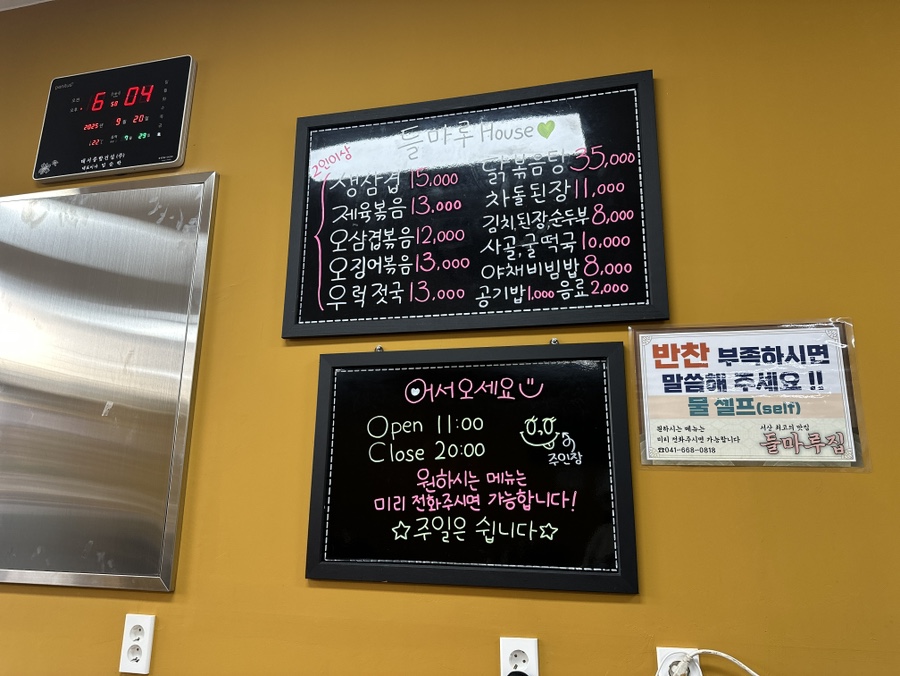 6 04
2025년 9월 20일
들마루 House
2인이상
생삼겹 15,000
제육볶음 13,000
오삼겹볶음 12,000
오징어볶음 13,000
우럭젓국 13,000
닭볶음탕 35,000
차돌된장 11,000
김치,된장,순두부 8,000
사골,굴떡국 10,000
야채비빔밥 8,000
공기밥 1,000 음료 2,000
어서오세요
Open 11:00
Close 20:00
주인장
원하시는 메뉴는
미리 전화주시면 가능합니다!
☆주일은 쉽니다☆
반찬 부족하시면
말씀해 주세요 !!
물 셀프(self)
원하시는 메뉴는
미리 전화주시면 가능합니다
☎041-668-0818
서산 최고의 맛집
들마루집